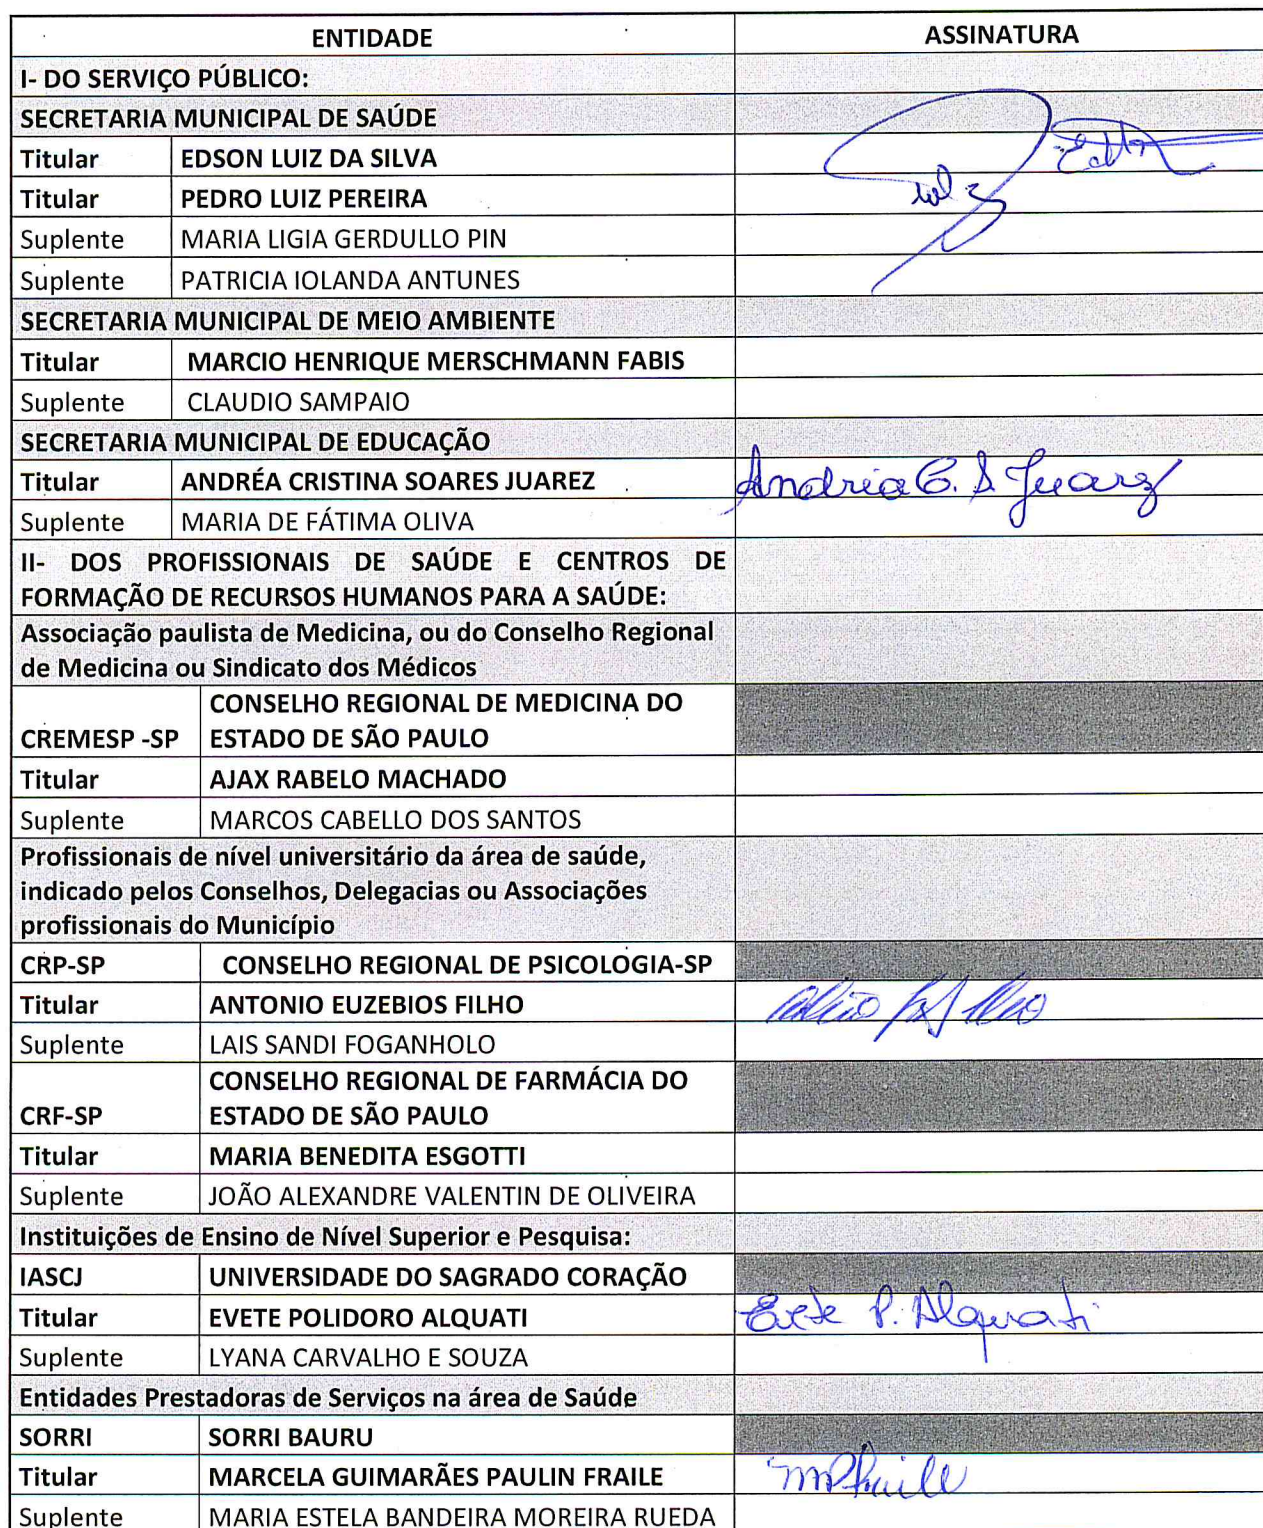 ENTIDADE ASSINATURA
I- DO SERVIÇO PÚBLICO:
SECRETARIA MUNICIPAL DE SAÚDE
Titular EDSON LUIZ DA SILVA
Titular PEDRO LUIZ PEREIRA
Suplente MARIA LIGIA GERDULLO PIN
Suplente PATRICIA IOLANDA ANTUNES
SECRETARIA MUNICIPAL DE MEIO AMBIENTE
Titular MARCIO HENRIQUE MERSCHMANN FABIS
Suplente CLAUDIO SAMPAIO
SECRETARIA MUNICIPAL DE EDUCAÇÃO
Titular ANDRÉA CRISTINA SOARES JUAREZ Andréia C. S. Juarez
Suplente MARIA DE FÁTIMA OLIVA
II- DOS PROFISSIONAIS DE SAÚDE E CENTROS DE
FORMAÇÃO DE RECURSOS HUMANOS PARA A SAÚDE:
Associação paulista de Medicina, ou do Conselho Regional
de Medicina ou Sindicato dos Médicos
CONSELHO REGIONAL DE MEDICINA DO
CREMESP -SP ESTADO DE SÃO PAULO
Titular AJAX RABELO MACHADO
Suplente MARCOS CABELLO DOS SANTOS
Profissionais de nível universitário da área de saúde,
indicado pelos Conselhos, Delegacias ou Associações
profissionais do Município
CRP-SP CONSELHO REGIONAL DE PSICOLOGIA-SP
Titular ANTONIO EUZEBIOS FILHO
Suplente LAIS SANDI FOGANHOLO
CONSELHO REGIONAL DE FARMÁCIA DO
CRF-SP ESTADO DE SÃO PAULO
Titular MARIA BENEDITA ESGOTTI
Suplente JOÃO ALEXANDRE VALENTIN DE OLIVEIRA
Instituições de Ensino de Nível Superior e Pesquisa:
IASCJ UNIVERSIDADE DO SAGRADO CORAÇÃO
Titular EVETE POLIDORO ALQUATI Evete P. Alquati
Suplente LYANA CARVALHO E SOUZA
Entidades Prestadoras de Serviços na área de Saúde
SORRI SORRI BAURU
Titular MARCELA GUIMARÃES PAULIN FRAILE
Suplente MARIA ESTELA BANDEIRA MOREIRA RUEDA